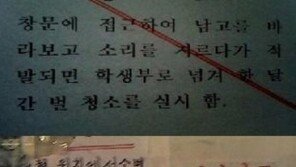 창문에 접근하여 남고를 바
라보고 소리를 지르다가 적
발되면 학생부로 넘겨 한 달
간 벌 청소를 실시 함.